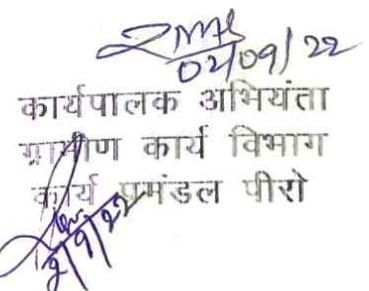 02/09/22
कार्यपालक अभियंता
ग्रामीण कार्य विभाग
कार्य प्रमंडल पीरो
2/9/22